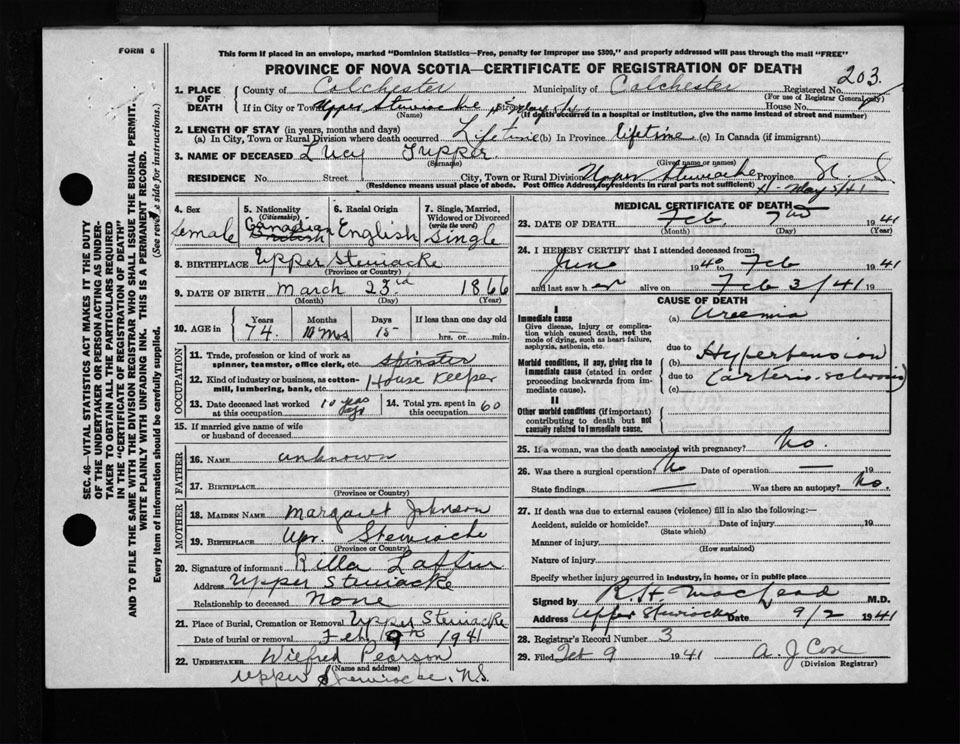 FORM 6
This form if placed in an envelope, marked "Dominion Statistics—Free, penalty for improper use $300," and properly addressed will pass through the mail "FREE"
PROVINCE OF NOVA SCOTIA—CERTIFICATE OF REGISTRATION OF DEATH
203
1. PLACE OF DEATH County of Colchester Municipality of Colchester Registered No.
(For use of Registrar General only)
If in City or Town Upper Stewiacke House No.
(Name) (If death occurred in a hospital or institution, give the name instead of street and number)
2. LENGTH OF STAY (in years, months and days)
(a) In City, Town or Rural Division where death occurred Lifetime (b) In Province lifetime (c) In Canada (if immigrant)
3. NAME OF DECEASED Lucy Tupper
(Surname) (Given name or names)
RESIDENCE No. Street City, Town or Rural Division Upper Stewiacke Province N. S.
(Residence means usual place of abode. Post Office Address for residents in rural parts not sufficient)
4. Sex female
5. Nationality (Citizenship) Canadian
6. Racial Origin English
7. Single, Married, Widowed or Divorced (write the word) Single
8. BIRTHPLACE Upper Stewiacke
(Province or Country)
9. DATE OF BIRTH March 23rd 1866
(Month) (Day) (Year)
10. AGE in Years 74 Months 10 Mos Days 15 If less than one day old hrs. or min.
OCCUPATION
11. Trade, profession or kind of work as spinner, teamster, office clerk, etc. Spinster
12. Kind of industry or business, as cotton-mill, lumbering, bank, etc. House Keeper
13. Date deceased last worked at this occupation 10 years ago
14. Total yrs. spent in this occupation 60
15. If married give name of wife or husband of deceased
FATHER
16. NAME unknown
17. BIRTHPLACE
(Province or Country)
MOTHER
18. MAIDEN NAME Margaret Johnson
19. BIRTHPLACE Upr. Stewiacke
(Province or Country)
20. Signature of informant Rilla Laflin
Address Upper Stewiacke
Relationship to deceased None
21. Place of Burial, Cremation or Removal Upper Stewiacke
Date of burial or removal Feb 9th 1941
22. UNDERTAKER Wilfred Pearson
(Name and address)
Upper Stewiacke, N.S.
MEDICAL CERTIFICATE OF DEATH
23. DATE OF DEATH Feb 7th 1941
(Month) (Day) (Year)
24. I HEREBY CERTIFY that I attended deceased from:
June 1940 to Feb 1941
and last saw her alive on Feb 3/41 19
CAUSE OF DEATH
I
Immediate cause
Give disease, injury or complication which caused death, not the mode of dying, such as heart failure, asphyxia, asthenia, etc.
(a) Ureemia
due to
Morbid conditions, if any, giving rise to immediate cause (stated in order proceeding backwards from immediate cause).
(b) Hypertension
due to (arterio-sclerosis)
(c)
II
Other morbid conditions (if important) contributing to death but not causally related to immediate cause.
25. If a woman, was the death associated with pregnancy? No.
26. Was there a surgical operation No Date of operation — 19
State findings — Was there an autopsy? No.
27. If death was due to external causes (violence) fill in also the following:—
Accident, suicide or homicide? Date of injury 19
(State which)
Manner of injury
(How sustained)
Nature of injury
Specify whether injury occurred in industry, in home, or in public place
Signed by R. H. MacLeod M.D.
Address Upper Stewiacke Date 9/2 1941
28. Registrar's Record Number 3
29. Filed Feb 9 1941 A. J. Cox
(Division Registrar)
SEC. 46—VITAL STATISTICS ACT MAKES IT THE DUTY
OF THE UNDERTAKER OR PERSON ACTING AS UNDERTAKER TO OBTAIN ALL THE PARTICULARS REQUIRED
IN THE "CERTIFICATE OF REGISTRATION OF DEATH"
AND TO FILE THE SAME WITH THE DIVISION REGISTRAR WHO SHALL ISSUE THE BURIAL PERMIT.
WRITE PLAINLY WITH UNFADING INK. THIS IS A PERMANENT RECORD.
Every item of information should be carefully supplied. (See reverse side for instructions.)